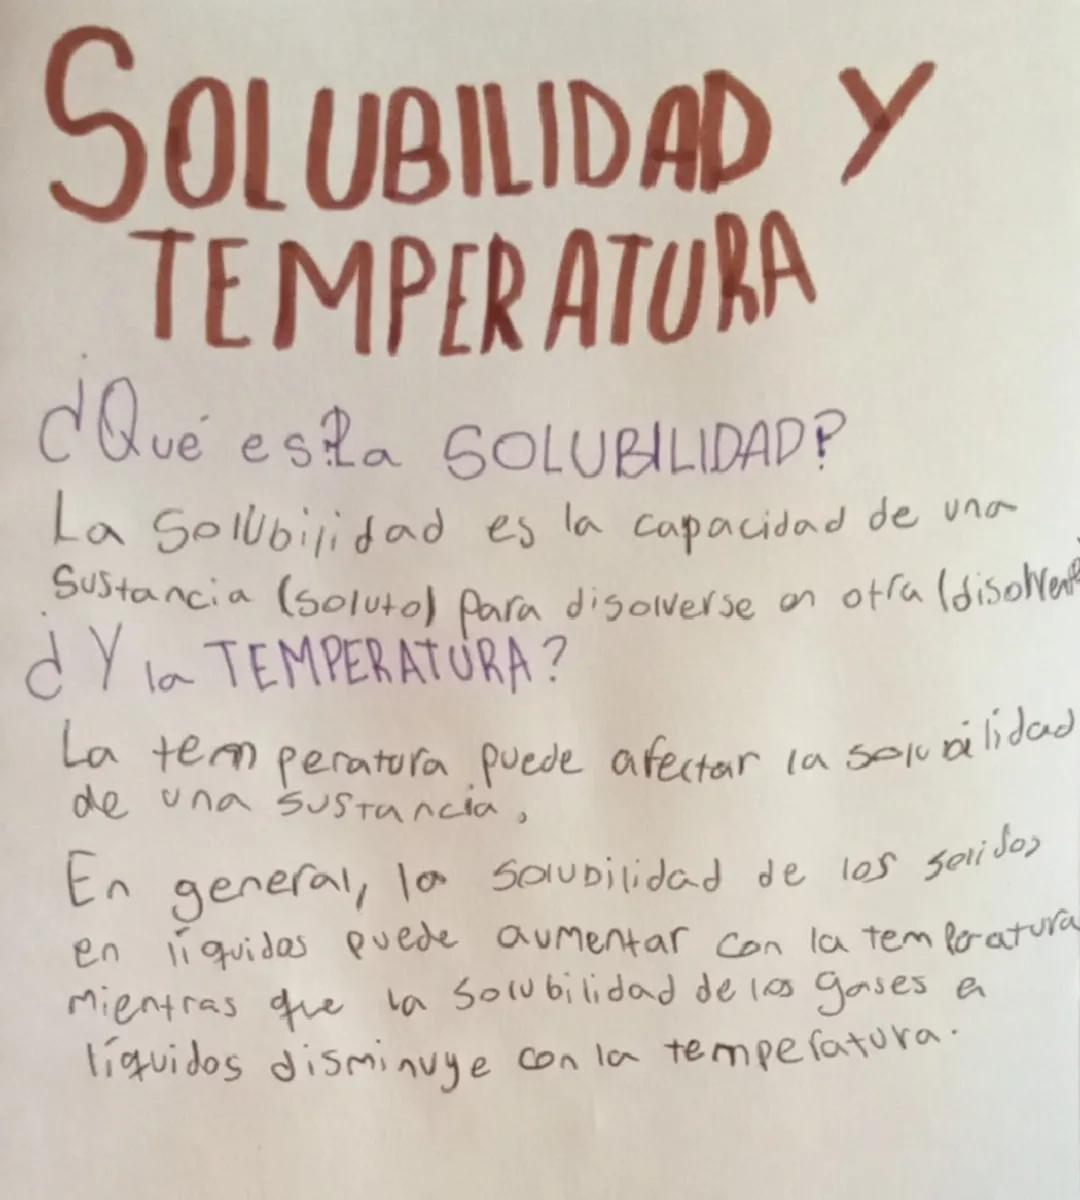 SOLUBILIDAD Y
TEMPERATURA
¿Qué es la SOLUBILIDAD?
La Solubilidad es la capacidad de una
sustancia (soluto) para disolverse en otra (disolvente
¿Y la TEMPERATURA?
La temperatura puede afectar la solubilidad
de una sustancia,
En general, la solubilidad de los solidos
en líquidos puede aumentar con la temperatura
mientras que la solubilidad de los gases en
líquidos disminuye con la temperatura.